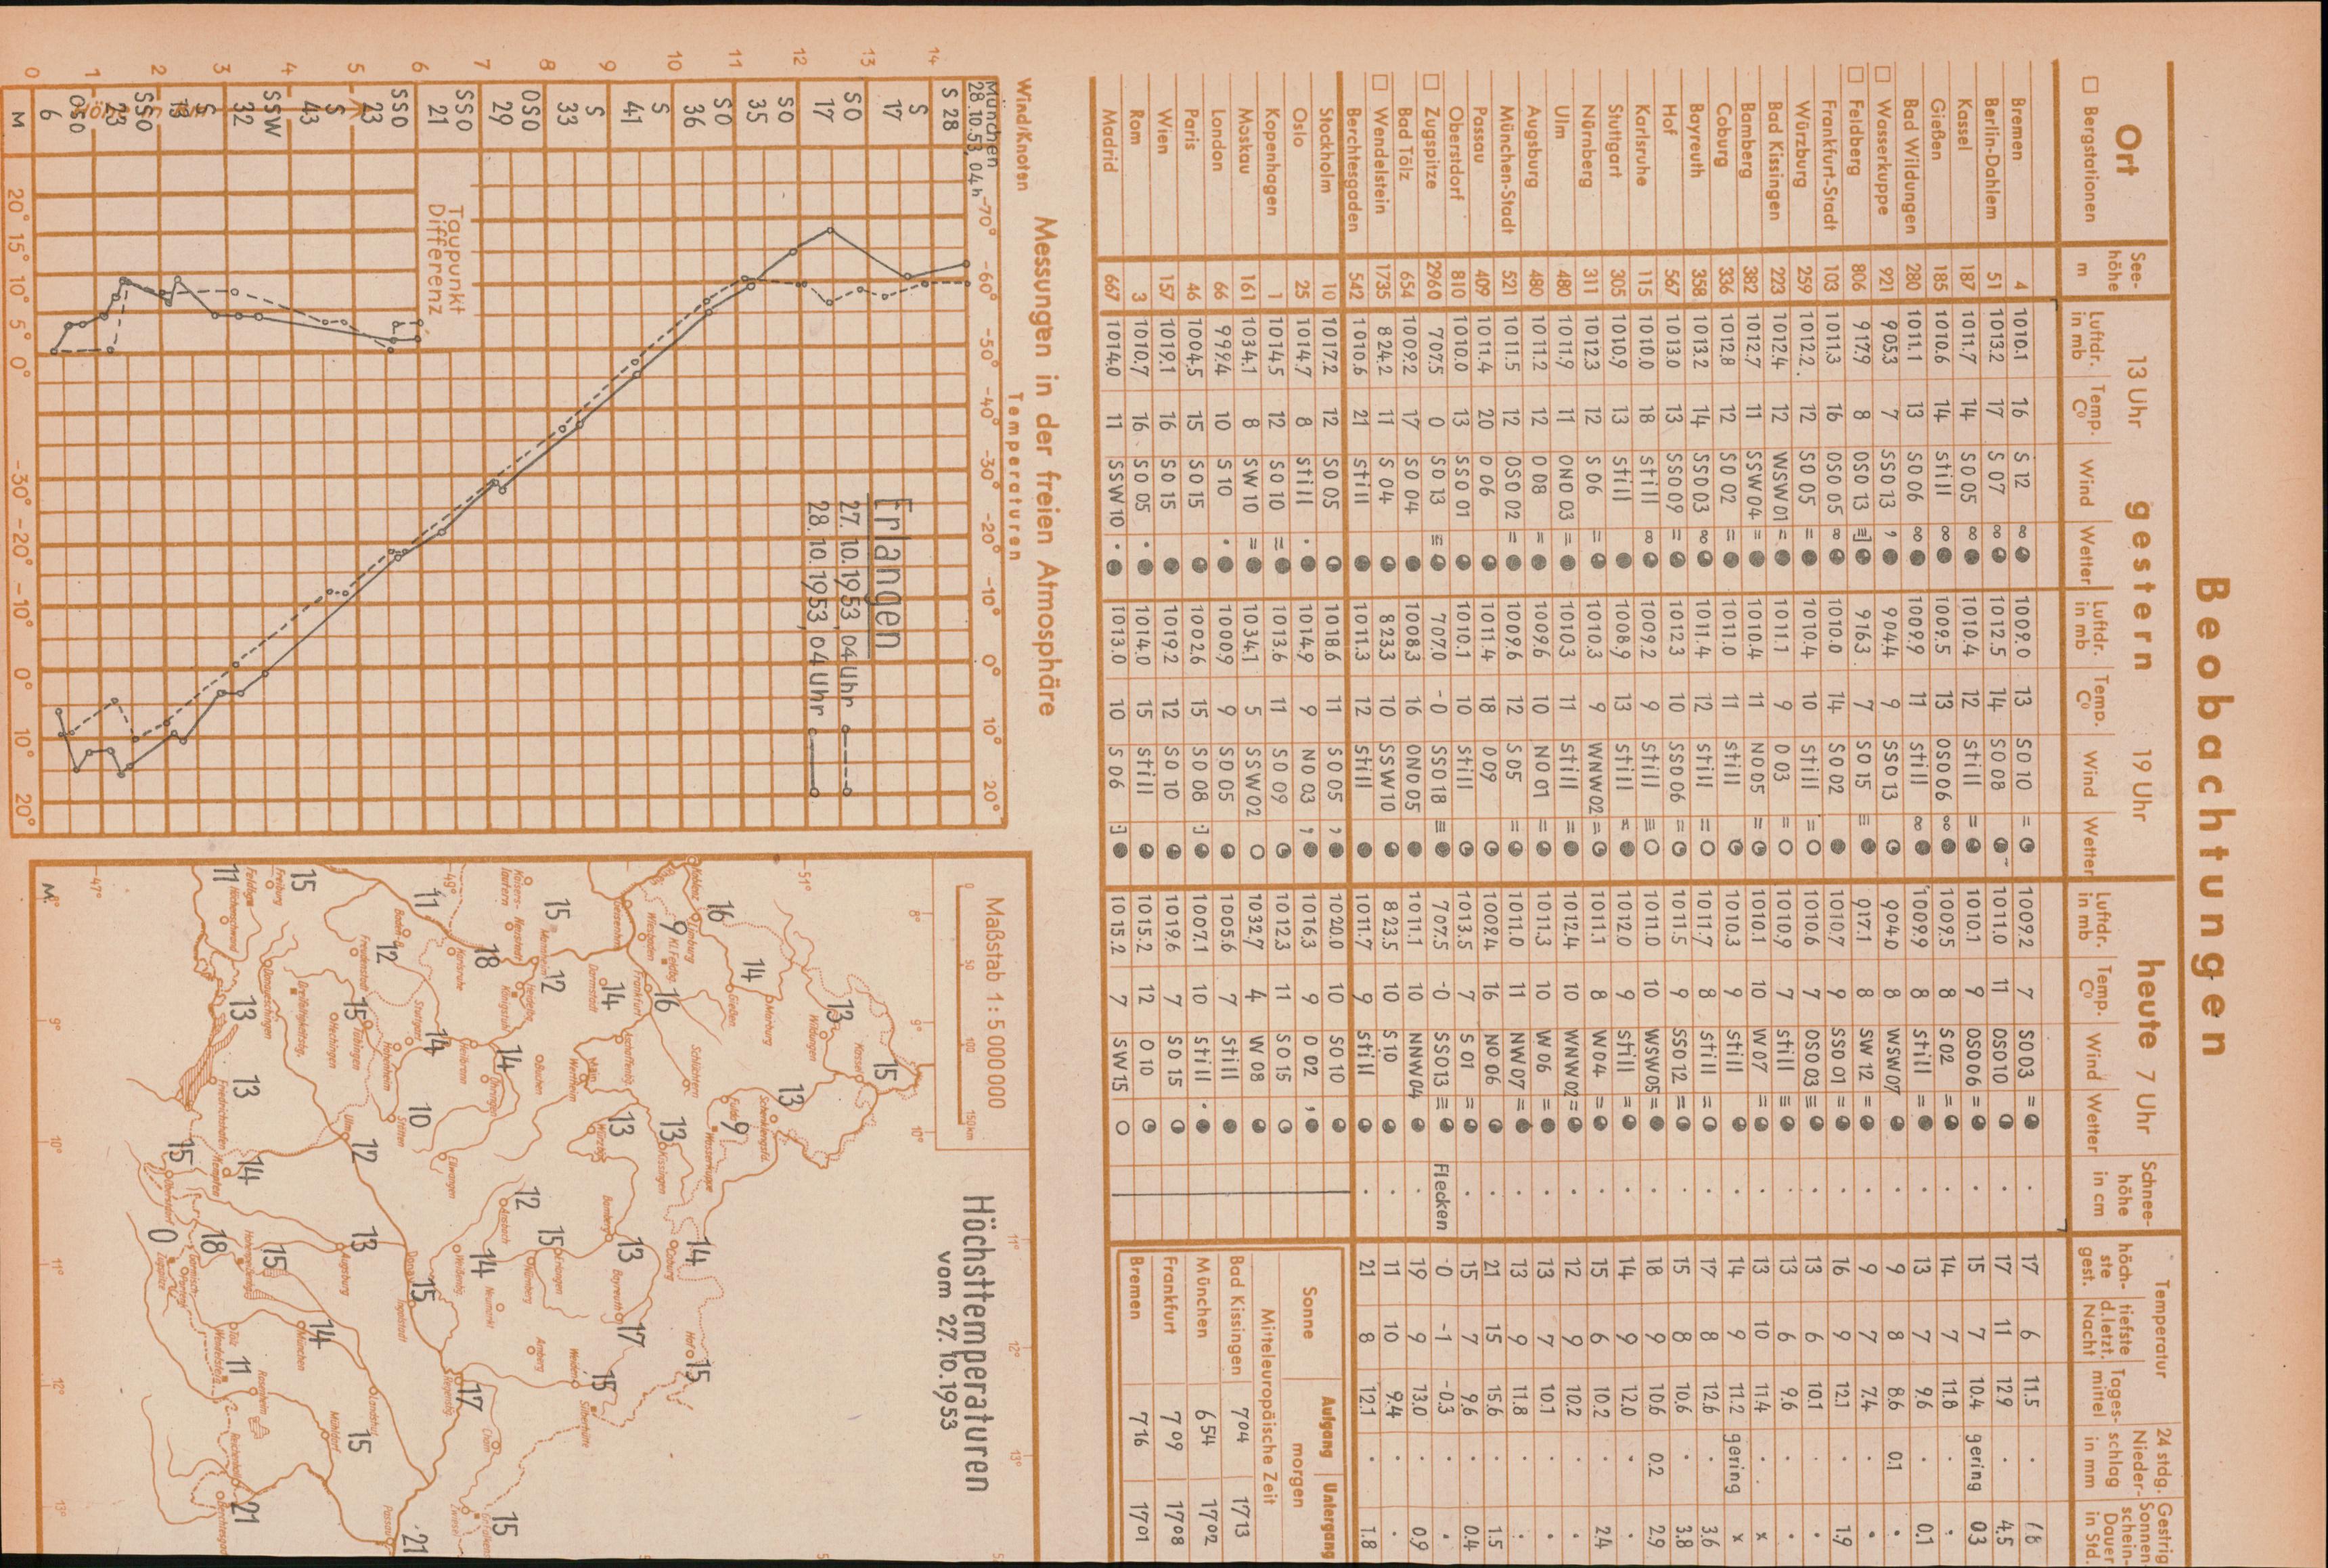 Beobachtungen
Ort
□ Bergstationen
See-höhe m
13 Uhr gestern 19 Uhr heute 7 Uhr
Luftdr. in mb Temp. C° Wind Wetter Luftdr. in mb Temp. C° Wind Wetter Luftdr. in mb Temp. C° Wind Wetter
Schnee-höhe in cm
Temperatur
höch-ste gest. tiefste d.letzt. Nacht Tages-mittel
24 stdg. Nieder-schlag in mm
Gestrig. Sonnen-schein-Dauer in Std.
Bremen 4 1010.1 16 S 12 ∞ 1009.0 13 SO 10 = 1009.2 7 SO 03 = . 17 6 11.5 .
Berlin-Dahlem 51 1013.2 17 S 07 ∞ 1012.5 14 SO 08 1011.0 11 OSO 10 . 17 11 12.9 . 4.5
Kassel 187 1011.7 14 SO 05 ∞ 1010.4 12 still = 1010.1 9 OSO 06 = . 15 7 10.4 gering 0.3
Gießen 185 1010.6 14 still ∞ 1009.5 13 OSO 06 ∞ 1009.5 8 S 02 = . 14 7 11.8 . .
Bad Wildungen 280 1011.1 13 SO 06 ∞ 1009.9 11 still ∞ 1009.9 8 still = . 13 7 9.6 . 0.1
□ Wasserkuppe 921 905.3 7 SSO 13 , 904.4 9 SSO 13 904.0 8 WSW 07 . 9 8 8.6 0.1 .
□ Feldberg 806 917.9 8 OSO 13 ≡ 916.3 7 SO 15 ≡ 917.1 8 SW 12 = . 9 7 7.4 . .
Frankfurt-Stadt 103 1011.3 16 OSO 05 ∞ 1010.0 14 SO 02 1010.7 9 SSO 01 = . 16 9 12.1 . 1.9
Würzburg 259 1012.2 12 SO 05 = 1010.4 10 still = 1010.6 7 OSO 03 ≡ . 13 6 10.1 . .
Bad Kissingen 223 1012.4 12 WSW 01 = 1011.1 9 O 03 = 1010.9 7 still ≡ . 13 6 9.6 . .
Bamberg 382 1012.7 11 SSW 04 = 1010.4 11 NO 05 = 1010.1 10 W 07 = . 13 10 11.4 . x
Coburg 336 1012.8 12 SO 02 = 1011.0 11 still 1010.3 9 still . 14 9 11.2 gering x
Bayreuth 358 1013.2 14 SSO 03 ∞ 1011.4 12 still = 1011.7 8 still = . 17 8 12.6 . 3.6
Hof 567 1013.0 13 SSO 09 = 1012.3 10 SSO 06 = 1011.5 9 SSO 12 = . 15 8 10.6 . 3.8
Karlsruhe 115 1010.0 18 still ∞ 1009.2 9 still ≡ 1011.0 10 WSW 05 = . 18 9 10.6 0.2 2.9
Stuttgart 305 1010.9 13 still 1008.9 13 still = 1012.0 9 still = . 14 9 12.0 . .
Nürnberg 311 1012.3 12 S 06 = 1010.3 9 WNW 02 = 1011.1 8 W 04 = . 15 6 10.2 . 2.4
Ulm 480 1011.9 11 ONO 03 = 1010.3 11 still = 1012.4 10 WNW 02 = . 12 9 10.2 . .
Augsburg 480 1011.2 12 O 08 = 1009.6 10 NO 01 = 1011.3 10 W 06 = . 13 7 10.1 . .
München-Stadt 521 1011.5 12 OSO 02 = 1009.6 12 S 05 = 1011.0 11 NW 07 = . 13 9 11.8 . .
Passau 409 1011.4 20 O 06 1011.4 18 O 09 1009.4 16 NO 06 . 21 15 15.6 . 1.5
Oberstdorf 810 1010.0 13 SSO 01 1010.1 10 still 1013.5 7 S 01 = . 15 7 9.6 . 0.4
□ Zugspitze 2960 707.5 0 SO 13 ≡ 707.0 -0 SSO 18 ≡ 707.5 -0 SSO 13 = Flecken -0 -1 -0.3 . .
Bad Tölz 654 1009.2 17 SO 04 1008.3 16 ONO 05 1011.1 10 NNW 04 . 19 9 13.0 . 0.9
□ Wendelstein 1735 824.2 11 S 04 823.3 10 SSW 10 823.5 10 S 10 . 11 10 9.4 . .
Berchtesgaden 542 1010.6 21 still 1011.3 12 still 1011.7 9 still . 21 8 12.1 . 1.8
Stockholm 10 1017.2 12 SO 05 1018.6 11 SO 05 , 1020.0 10 SO 10
Oslo 25 1014.7 8 still . 1014.9 9 NO 03 , 1016.3 9 O 02 ,
Kopenhagen 1 1014.5 12 SO 10 = 1013.6 11 SO 09 1012.3 11 SO 15
Moskau 161 1034.1 8 SW 10 = 1034.1 5 SSW 02 1032.7 4 W 08
London 66 999.4 10 S 10 . 1000.9 9 SO 05 1005.6 7 still
Paris 46 1004.5 15 SO 15 1002.6 15 SO 08 1007.1 10 still .
Wien 157 1019.1 16 SO 15 1019.2 12 SO 10 1019.6 7 SO 15
Rom 3 1010.7 16 SO 05 . 1014.0 15 still 1015.2 12 O 10
Madrid 667 1014.0 11 SSW 10 . 1013.0 10 S 06 1015.2 7 SW 15
Sonne Aufgang Untergang
morgen
Mitteleuropäische Zeit
Bad Kissingen 704 1713
München 654 1702
Frankfurt 709 1708
Bremen 716 1701
Messungen in der freien Atmosphäre
Wind/Knoten Temperaturen
München 28.10.53, 04h
-70° -60° -50° -40° -30° -20° -10° 0° 10° 20°
S 28
14
S 17
13
SO 17
12
SO 35
11
SO 36
10
S 41
9
S 33
8
OSO 29
7
SSO 21
6
SSO 23
5
S 43
4
SSW 32
3
S
2
SSO 23
1
OSO 6
0
M
Erlangen
27.10.1953, 04 Uhr
28.10.1953, 04 Uhr
Taupunkt Differenz
20° 15° 10° 5° 0° -30° -20° -10° 0° 10° 20°
Maßstab 1:5 000 000
0 50 100 150km
Höchsttemperaturen
vom 27.10.1953
8° 9° 10° 11° 12° 13°
51° 49° 47°
Koblenz
Limburg 16
Kl. Feldbg. 9
Wiesbaden
Geisenheim
Frankfurt 16
Gießen 14
Marburg
Wildungen 13
Kassel 15
Schenklengsfd. 13
Fulda
Wasserkuppe 9
Schlüchtern
Kissingen 13
Coburg 14
Hof 15
Darmstadt 14
Main
Wertheim
Würzburg 13
Bamberg 13
Bayreuth 17
Weiden 15
Silberhütte
Mannheim 15
Kaiserslautern
Heidelbg. 12
Königstuhl
Buchen
Öhringen 14
Ansbach 12
Erlangen 15
Nürnberg
Neumarkt
Amberg
Weißenbg. 14
Karlsruhe 18
Baden-B. 11
Heilbronn
Stuttgart 14
Hohenheim
Stötten 10
Ellwangen
Donau
Ingolstadt 15
Regensbg. 17
Cham
Zwiesel
Gr. Falkenst. 15
Freudenstadt 12
Tübingen 15
Hechingen
Ulm 12
Augsburg 13
Landshut
Passau 21
Freiburg 15
Feldbg. 11
Höchenschwand
Donaueschingen 13
Dreifaltigkeitsbg.
Friedrichshafen 13
Kempten 14
Oberstdorf 15
Hohenpeißenbg. 15
München 14
Mühldorf 15
Garmisch-Partenk. 18
Zugspitze 0
Tölz
Wendelstein 11
Rosenheim
Reichenhall
Berchtesgad. 21
M.